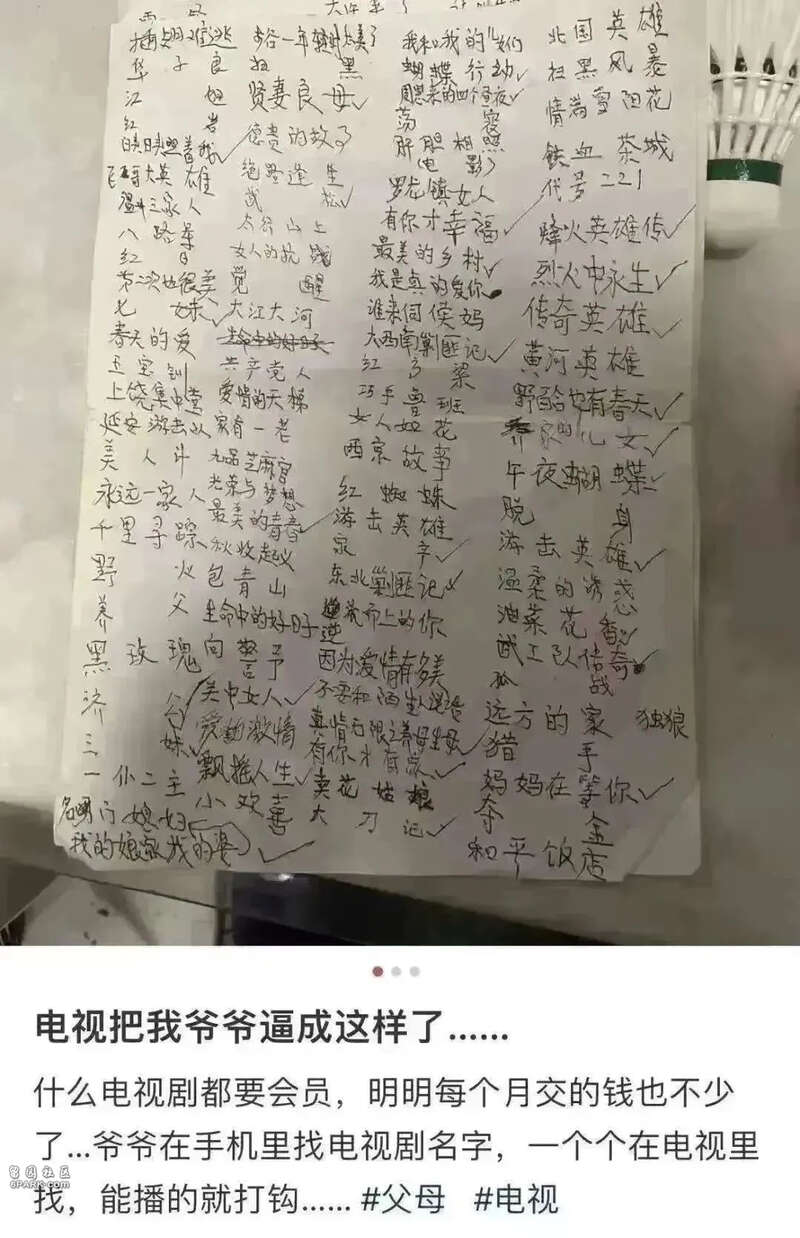 华子良
江姐
贤妻良母✓
蝴蝶行动✓
周恩来的四个昼夜✓
北国英雄
扫黑风暴
情满雪阳花
铁血茶城
代号221
红岩
德贵的故事
绝路逢生
肝胆相照
电影
罗龙镇女人
飞哥大英雄
温州三家人
八路军
太行山上
有你才幸福✓
烽火英雄传✓
红日
女人的抗战
最美的乡村✓
烈火中永生✓
第二次也很美
觉醒
我是真的爱你
传奇英雄✓
七妹✓
大江大河
谁来伺候妈
黄河英雄
春天的爱
大西南剿匪记✓
野百合也有春天✓
共产党人
红高粱
上饶集中营
爱情的天梯
巧手鲁班
养家的儿女✓
延安游击队
家有一老
女人如花
西京故事
午夜蝴蝶✓
美人计
九品芝麻官
永远一家人
光荣与梦想
红蜘蛛
脱身
千里寻踪
最美的青春✓
游击英雄
游击英雄✓
秋收起义
温柔的诱惑
野火
包青山
东北剿匪记✓
油菜花香✓
养父
生命中的好日子
逆流而上的你
武工队传奇
黑玫瑰
向警予
因为爱情有多美
孤战
济公
关中女人✓
不要和陌生人说话
远方的家
独狼
爱的激情
真情无限之养母生母✓
猎手
三妹✓
飘摇人生✓
有你才有家✓
妈妈在等你✓
一仆二主
小欢喜
卖花姑娘
夺金
名门媳妇
大刀记✓
和平饭店
我的娘家我的婆✓
电视把我爷爷逼成这样了……
什么电视剧都要会员，明明每个月交的钱也不少
了...爷爷在手机里找电视剧名字，一个个在电视里
找，能播的就打钩…… #父母 #电视
留园社区
6PARK.COM